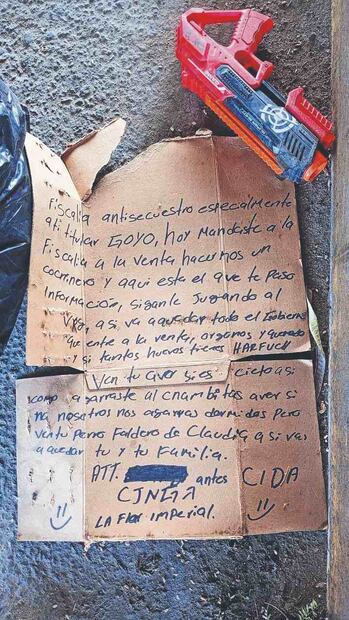 Fiscalia antisecuestro especialmente
ati titular GOYO, hoy Mandaste a la
Fiscalia a la venta hacernos un
cochinero y aqui esta el que te Paso
Información, siganle Jugando al
Vrg, a si va aquedar todo el Gobierno
que ente a la venta, organos y quemado
y si tantos huevos tienes HARFUCH
Ven tu aver si es cieto asi
como agarraste al chambitas aver si
na nosotros nos agarras dormidos Pero
ventu Perro Faldero de Claudia a si vas
a quedar tu y tu Familia.
ATT. antes CIDA
CJNGA
LA Flor imperial.